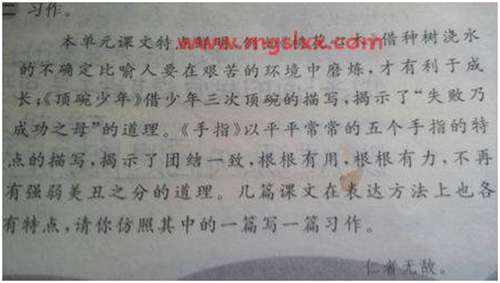 习作。
本单元课文特点鲜明,
www.mgslxx.com
借种树浇水
的不确定比喻人要在艰苦的环境中磨炼,才有利于成
长;《顶碗少年》借少年三次顶碗的描写,揭示了“失败乃
成功之母”的道理。《手指》以平平常常的五个手指的特
点的描写,揭示了团结一致,根根有用,根根有力,不再
有强弱美丑之分的道理。几篇课文在表达方法上也各
有特点,请你仿照其中的一篇写一篇习作。
仁者无敌。